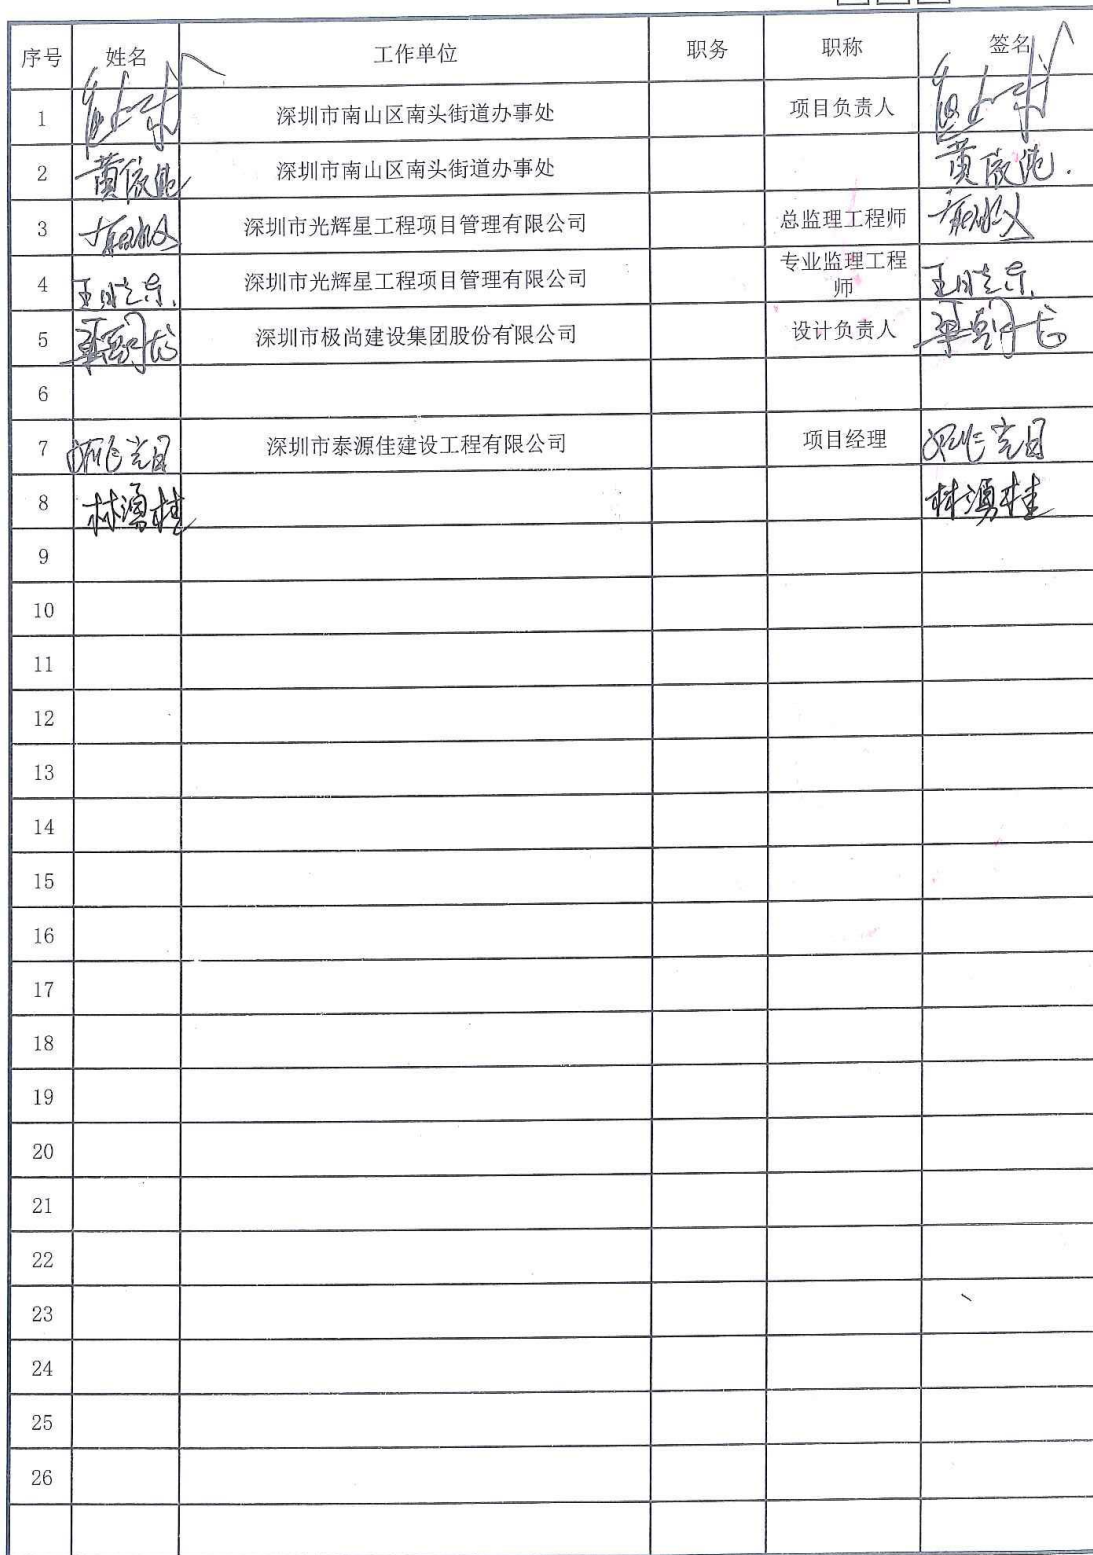 序号 姓名 工作单位 职务 职称 签名
1 深圳市南山区南头街道办事处 项目负责人
2 深圳市南山区南头街道办事处
3 深圳市光辉星工程项目管理有限公司 总监理工程师
4 深圳市光辉星工程项目管理有限公司 专业监理工程
师
5 深圳市极尚建设集团股份有限公司 设计负责人
6
7 深圳市泰源佳建设工程有限公司 项目经理
8 林湧桂 林湧桂
9
10
11
12
13
14
15
16
17
18
19
20
21
22
23
24
25
26